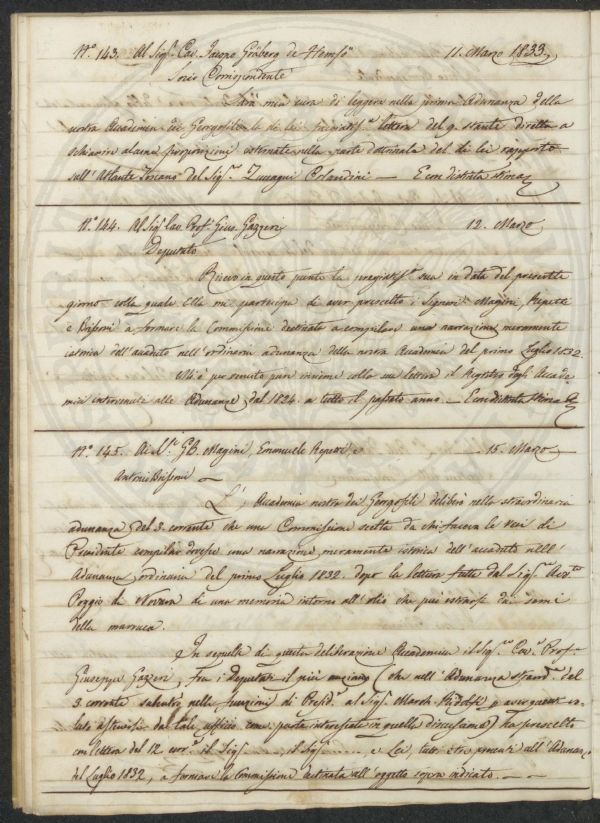 N.° 143. Al Sig.r Cav. Jacopo Gräberg de Hemsö 11. Marzo 1833.
Socio Corrispondente
Sarà mia cura di leggere nella prima Adunanza della
nostra Accademia dei Georgofili la di lei pregiatiss.a lettera del 9. stante diretta a
schiarire alcune proposizioni esternate nella parte dottrinale del di lei rapporto
sull'Atlante Toscano del Sig.r Zuccagni Orlandini — E con distinta stima
N.° 144. Al Sig.r Cav. Prof. Gius. Gazzeri 12. Marzo
Deputato
Ricevo in questo punto la pregiatiss.a sua in data del presente
giorno colla quale Ella mi partecipa di aver prescelto i Signori Magini, Repetti
e Brissoni a formare la Commissione destinata a compilare una narrazione meramente
istorica dell'accaduto nell'ordinaria adunanza della nostra Accademia del primo Luglio 1832.
M'è pervenuto pure insieme colla sua lettera il Registro degli Accade-
mici intervenuti alle Adunanze dal 1824. a tutto il passato anno. — E con distinta stima
N.° 145. Ai S.ri GB. Magini, Emanuele Repetti, e — 15. Marzo —
Antonio Brissoni —
L'Accademia nostra dei Georgofili deliberò nella straordinaria
adunanza del 3. corrente che una Commissione scelta da chi faceva le veci di
Presidente compilar dovesse una narrazione meramente istorica dell'accaduto nell'
Adunanza ordinaria del primo Luglio 1832. dopo la lettura fatta dal Sig.r
Poggio di Novara di una memoria intorno all'olio che può estrarsi dai semi
della marruca.
In seguito di questa deliberazione Accademica il Sig.r Cav.r Prof.
Giuseppe Gazzeri, fra i Deputati il più anziano (che nell'Adunanza straord.a del
3. corrente subentrò nelle funzioni di Presid.e al Sig.r March. Ridolfi p aver questi vo-
luto astenersi dal tale ufficio come parte interessata in quella discussione) ha prescelto
con lettera del 12. corr.e il Sig.r ..... il Sig.r ..... e Lei, tutti stati presenti all'Adunanza
del Luglio 1832, a formare la Commissione destinata all'oggetto sopra indicato. — —